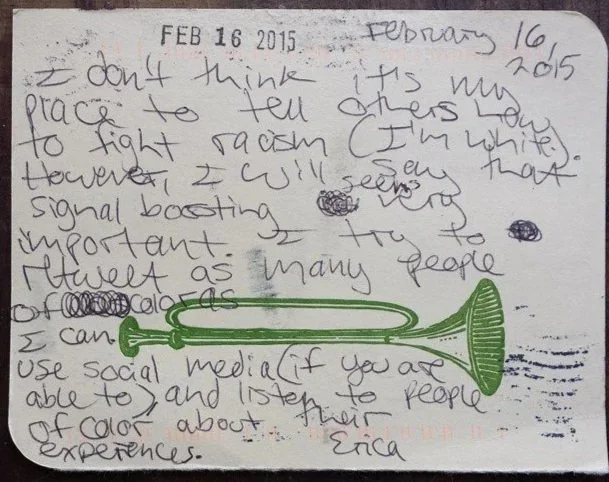 FEB 16 2015
February 16,
2015
I don't think it's my
place to tell others how
to fight racism (I'm white).
However, I will say that
signal boosting seems very
important. I try to
retweet as many people
of color as
I can.
use social media (if you are
able to) and listen to people
of color about their
experiences.
Erica